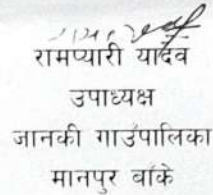 रामप्यारी यादव
उपाध्यक्ष
जानकी गाउँपालिका
मानपुर बाँके